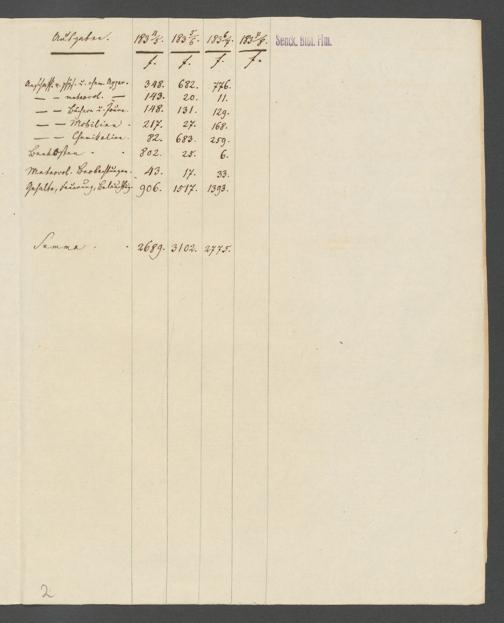 Ausgaben. 183 4/5. 183 5/6. 183 6/7. 183 7/8.
Senck. Bibl. Ffm.
f. f. f. f.
Anschaff. v. phys. u. chem. Appar. 348. 682. 776.
— — meteorol. — 143. 20. 11.
— — Büchern u. Journ. 148. 131. 129.
— — Mobilien. 217. 27. 168.
— — Chemikalien. 82. 683. 259.
Baukosten. 802. 25. 6.
Meteorol. Beobachtungen. 43. 17. 33.
Gehalte, Feuerung, Beleuchtg. 906. 1517. 1393.
Summa. 2689. 3102. 2775.
2